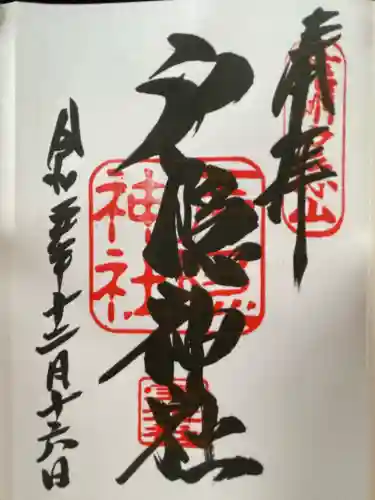 奉拝
戸隠神社
令和五年十二月十六日
戸隠
神社